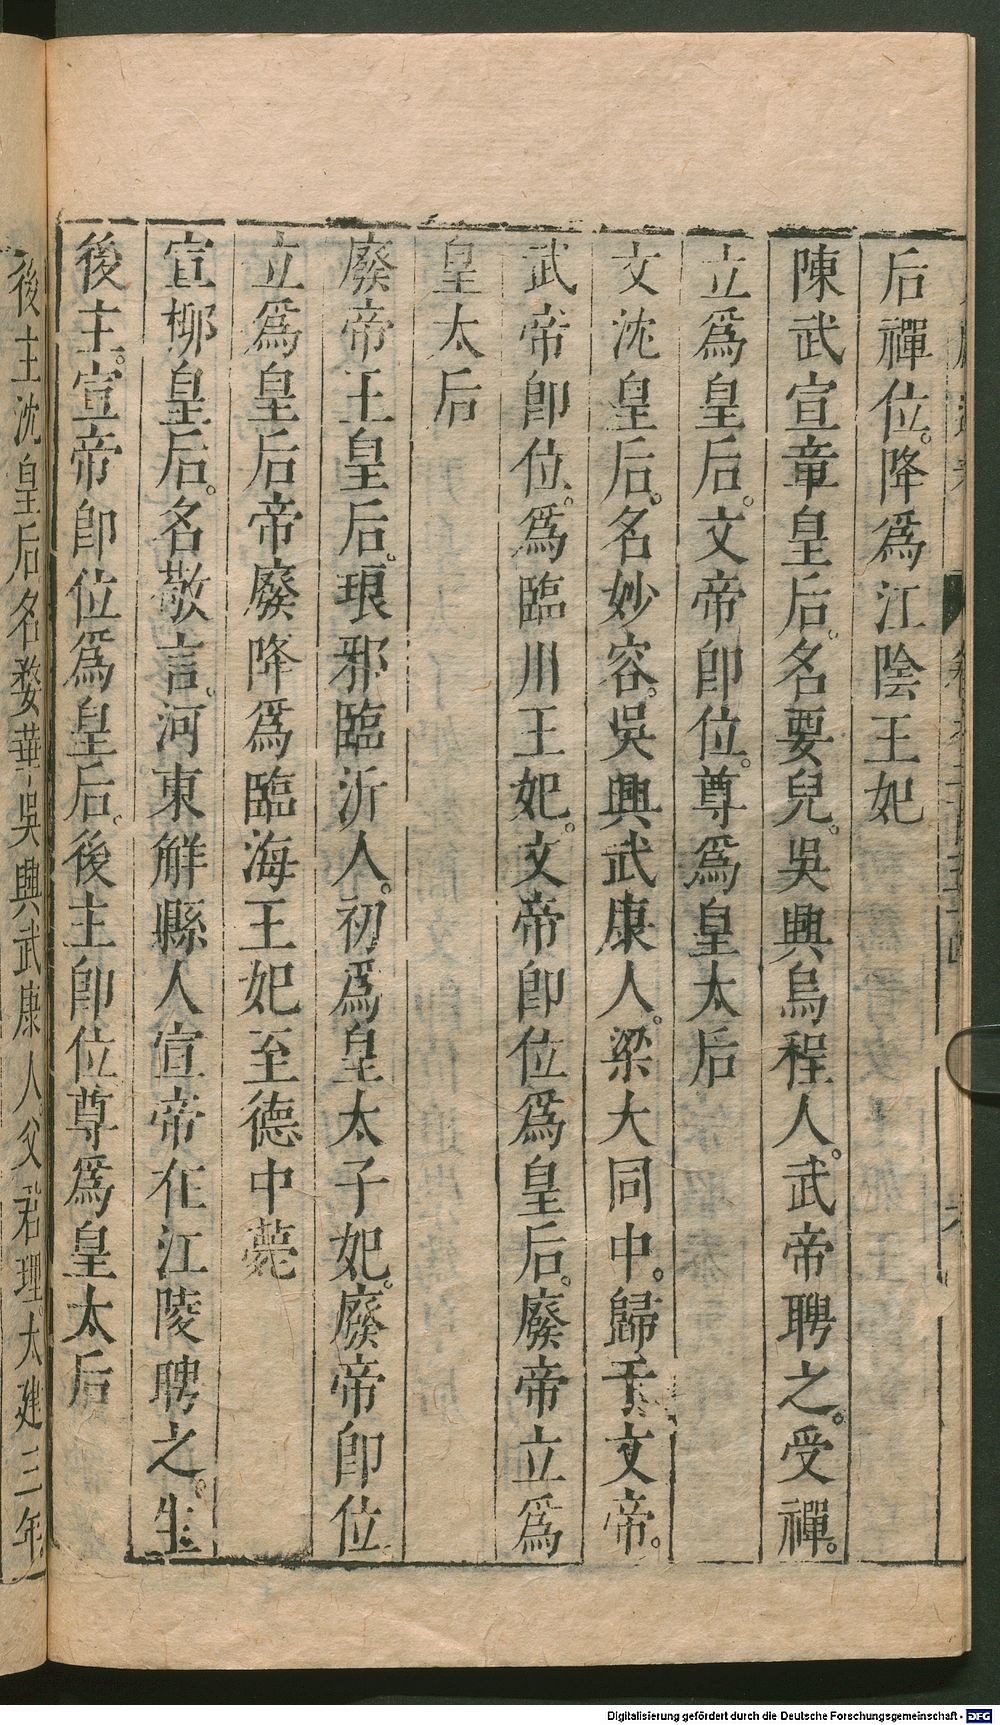 后禪位。降爲江陰王妃
陳武宣章皇后。名要兒。吳興烏程人。武帝聘之。受禪。
立爲皇后。文帝卽位。尊爲皇太后
文沈皇后。名妙容。吳興武康人。梁大同中。歸于文帝。
武帝卽位。爲臨川王妃。文帝卽位爲皇后。廢帝立爲
皇太后
廢帝王皇后。琅邪臨沂人。初爲皇太子妃。廢帝卽位
立爲皇后帝廢降爲臨海王妃至德中薨
宣柳皇后。名敬言。河東解縣人宣帝在江陵聘之。生
後主。宣帝卽位爲皇后。後主卽位尊爲皇太后
後主沈皇后名婺華吳興武康人父君理。太建三年。
Digitalisierung gefördert durch die Deutsche Forschungsgemeinschaft - DFG